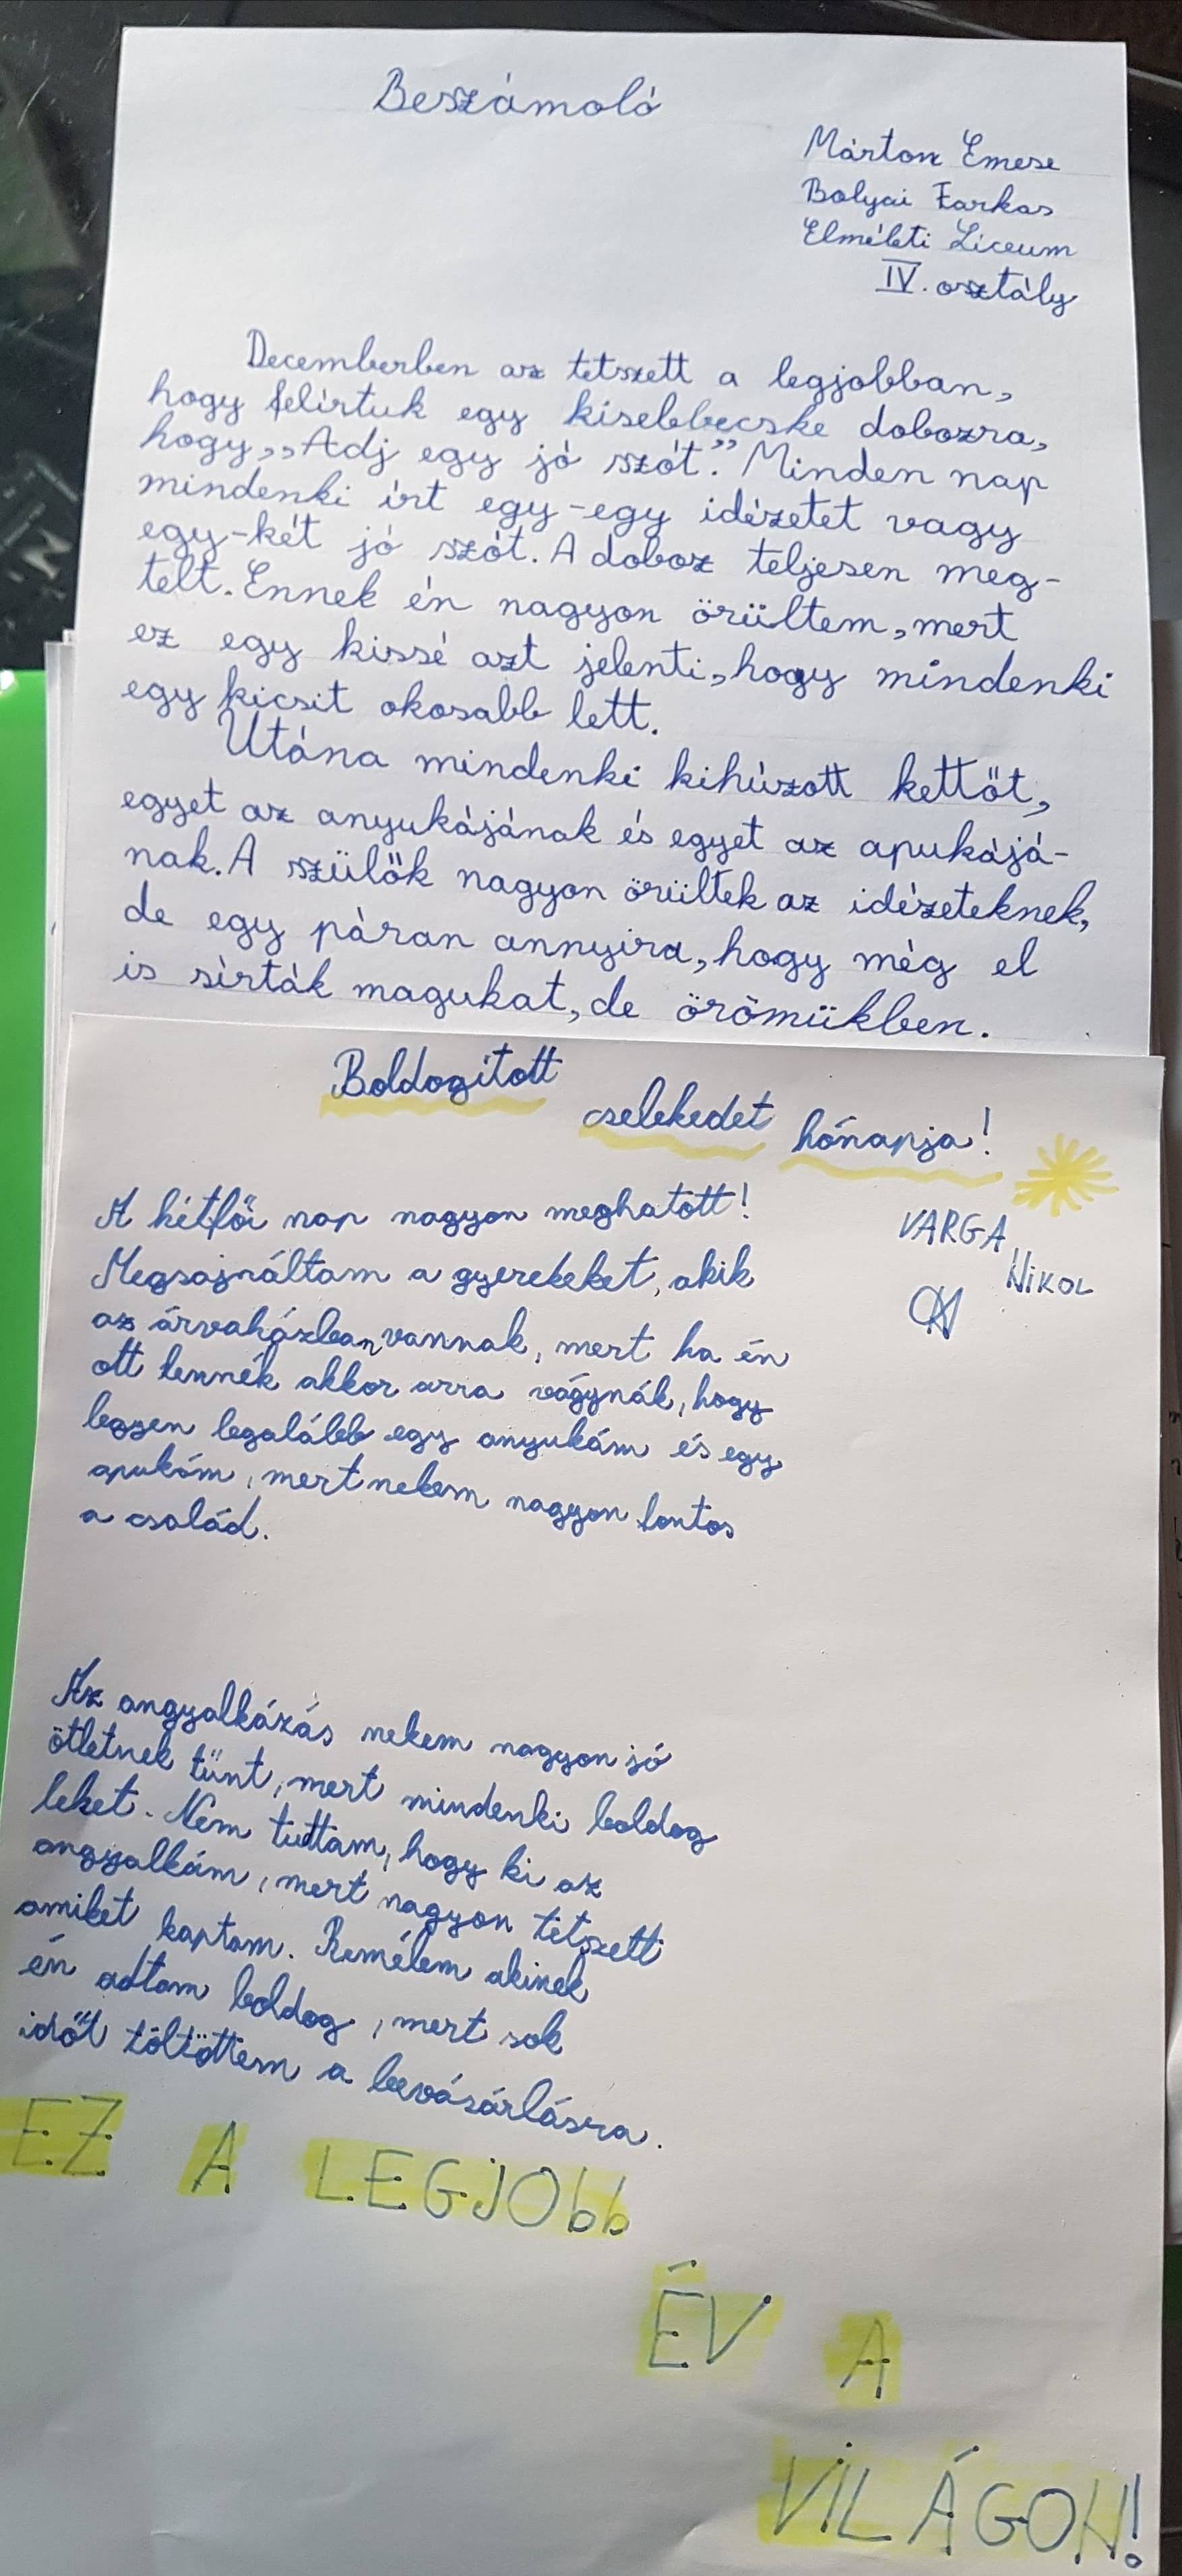 Beszámoló
Márton Emese
Bolyai Farkas
Elméleti Líceum
IV. osztály
Decemberben az tetszett a legjobban,
hogy felírtuk egy kisebbecske dobozra,
hogy „Adj egy jó szót." Minden nap
mindenki írt egy-egy idézetet vagy
egy-két jó szót. A doboz teljesen meg-
telt. Ennek én nagyon örültem, mert
ez egy kissé azt jelenti, hogy mindenki
egy kicsit okosabb lett.
Utána mindenki kihúzott kettőt,
egyet az anyukájának és egyet az apukájá-
nak. A szülők nagyon örültek az idézeteknek,
de egy páran annyira, hogy még el
is sírták magukat, de örömükben.
Boldogított
cselekedet hónapja!
A hétfői nap nagyon meghatott!
VARGA
NiKOL
Megsajnáltam a gyerekeket, akik
az árvaházban vannak, mert ha én
ott lennék akkor arra vágynák, hogy
legyen legalább egy anyukám és egy
apukám, mert nekem nagyon fontos
a család.
Az angyalkázás nekem nagyon jó
ötletnek tűnt, mert mindenki boldog
leket. Nem tudtam, hogy ki az
angyalkám, mert nagyon tetszett
amiket kaptam. Remélem akinek
én adtam boldog, mert sok
időt töltöttem a bevásárlásra.
EZ A LEGJObb
ÉV A
ViLÁGON!